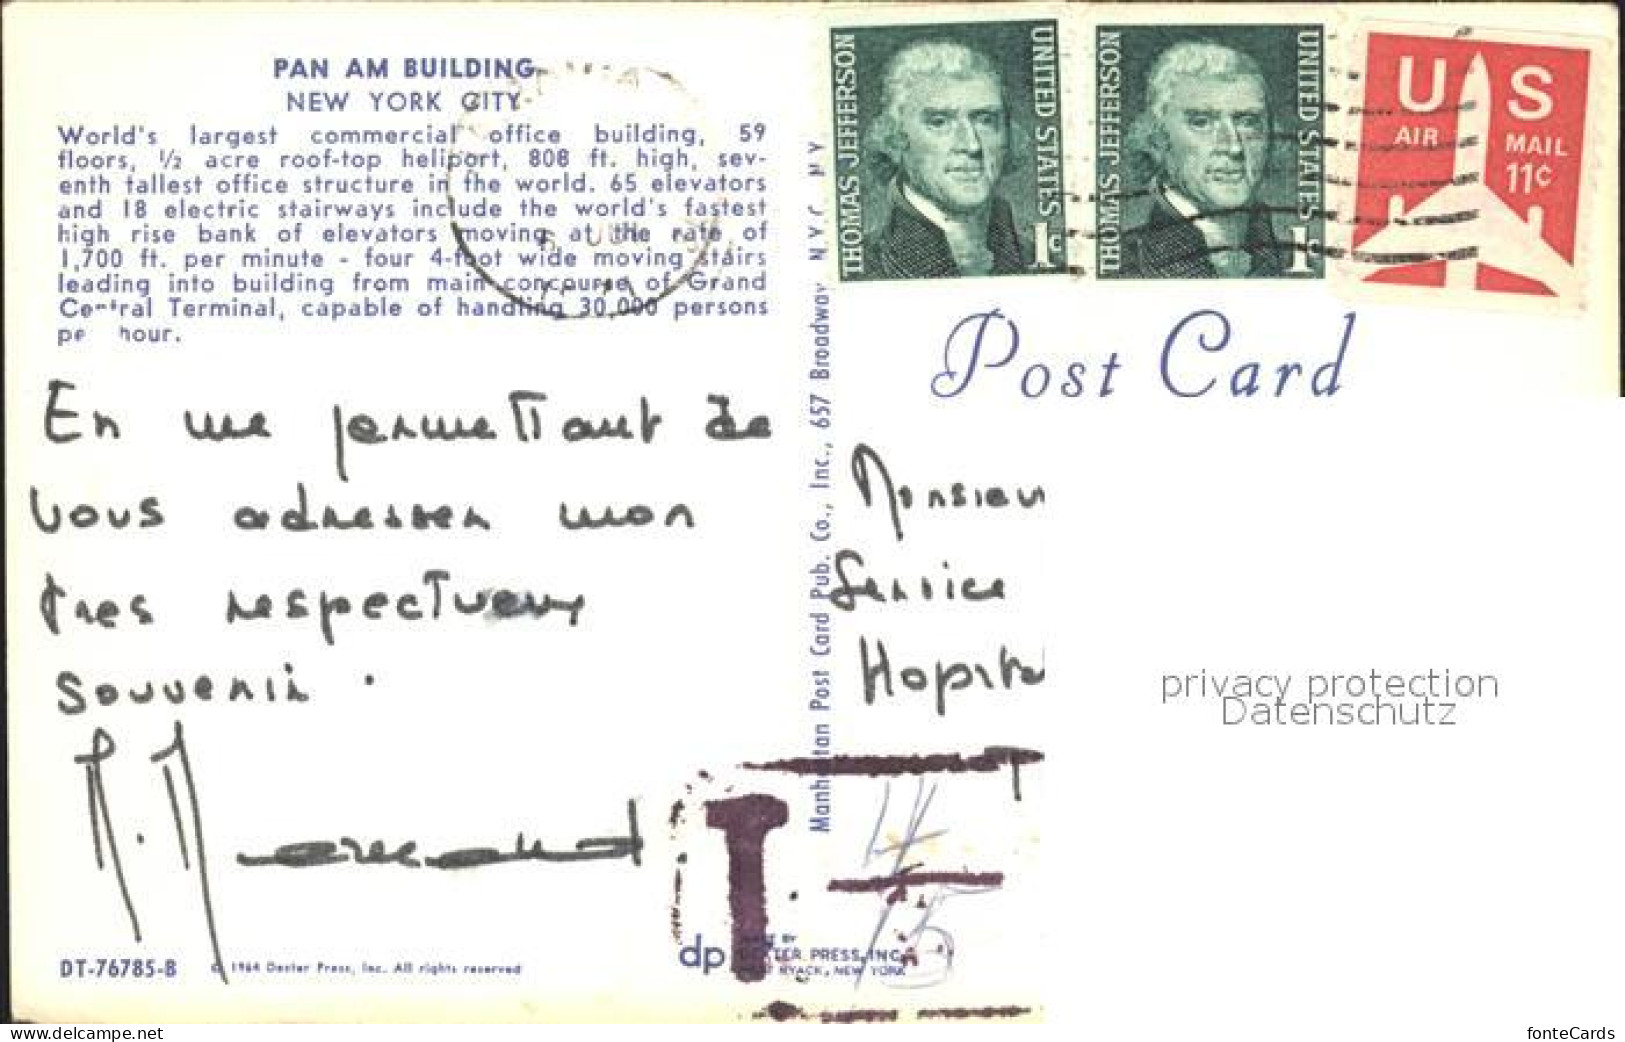 PAN AM BUILDING
NEW YORK CITY
World's largest commercial office building, 59
floors, ½ acre roof-top heliport, 808 ft. high, sev-
enth tallest office structure in the world. 65 elevators
and 18 electric stairways include the world's fastest
high rise bank of elevators moving at the rate of
1,700 ft. per minute - four 4-foot wide moving stairs
leading into building from main concourse of Grand
Central Terminal, capable of handling 30,000 persons
per hour.
En me permettant de
vous adresser mon
très respectueux
souvenir.
DT-76785-B
© 1964 Dexter Press, Inc. All rights reserved
Manhattan Post Card Pub. Co., Inc., 657 Broadway N.Y.C. N.Y.
THOMAS JEFFERSON
UNITED STATES
1c
THOMAS JEFFERSON
UNITED STATES
1c
US
AIR MAIL
11c
Post Card
Monsieur
Service
Hopita
T.
dp
DEXTER PRESS, INC.
WEST NYACK, NEW YORK
privacy protection
Datenschutz
www.delcampe.net
fonteCards